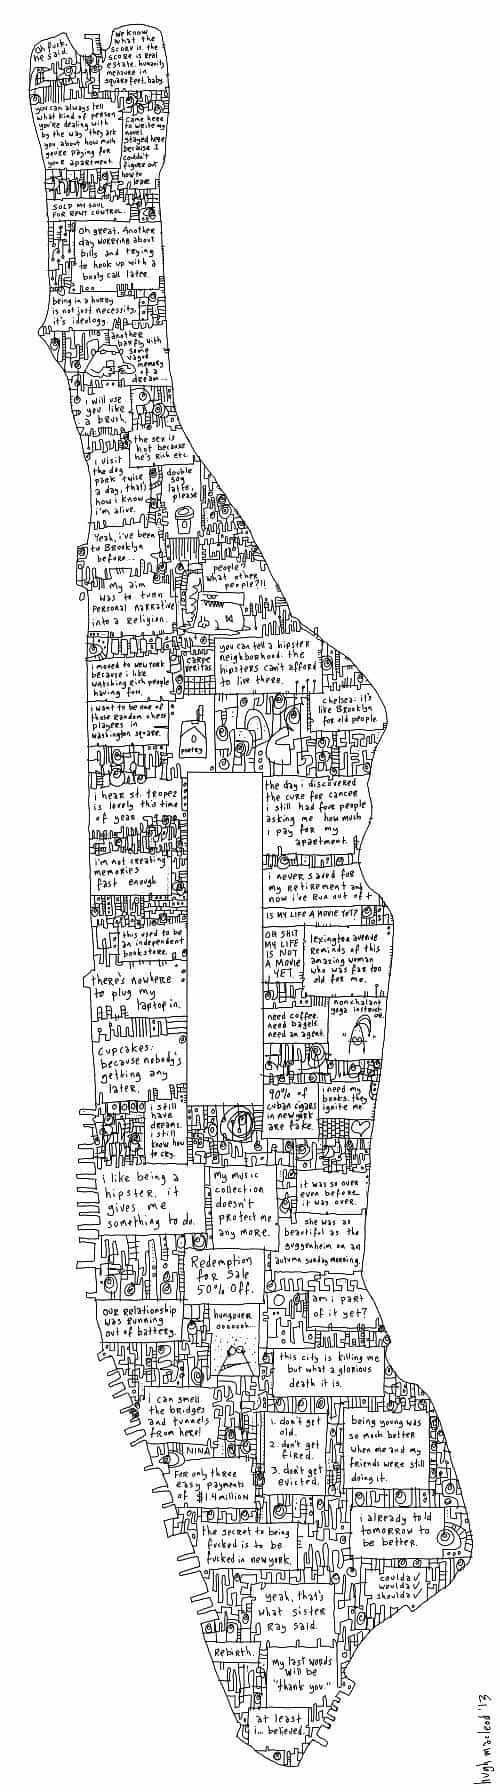 Oh fuck,
he said.
We know
what the
score is. the
score is real
estate. humanity
measure in
square feet, baby.
you can always tell
what kind of person
you're dealing with
by the way they ask
you about how much
you're paying for
your apartment.
Came here
to write my
novel
stayed here
because I
couldn't
figure out
how to
leave
SOLD MY SOUL
FOR RENT CONTROL.
Oh great. Another
day worrying about
bills and trying
to hook up with a
booty call later.
being in a hurry
is not just necessity,
it's ideology.
another
barfly with
some
vague
memory
of a
dream...
i will use
you like
a brush.
the sex is
hot because
he's rich etc.
i visit
the dog
park twice
a day, that's
how i know
i'm alive.
double
soy
latte,
please
Yeah, i've been
to Brooklyn
before...
people?
what other
people?!!
My aim
was to turn
personal narrative
into a religion.
carpe
veritas
you can tell a hipster
neighborhood: the
hipsters can't afford
to live there.
i moved to new york
because i like
watching rich people
having fun.
i want to be one of
those random chess
players in
washington square.
poetry
chelsea: it's
like Brooklyn
for old people
i hear st. tropez
is lovely this time
of year
the day i discovered
the cure for cancer
i still had four people
asking me how much
i pay for my
apartment.
i'm not creating
memories
fast enough
i never saved for
my retirement and
now i've run out of t
IS MY LIFE A MOVIE YET?
this used to be
an independent
bookstore.
OH SHIT
MY LIFE
IS NOT
A MOVIE
YET
lexington avenue
reminds of this
amazing woman
who was far too
old for me.
there's nowhere
to plug my
laptop in.
need coffee.
need bagels.
need an agent.
nonchalant
yoga instruct
or.
Cupcakes:
because nobody's
getting any
later.
90% of
cuban cigars
in new york
are fake.
i need my
books. they
ignite me
i still
have
dreams.
i still
know how
to cry.
i like being a
hipster. it
gives me
something to do.
My music
collection
doesn't
protect me
any more.
it was so over
even before
it was over.
she was as
beautiful as the
guggenheim on an
autumn sunday morning.
Redemption
for sale
50% off.
OUR relationship
was running
out of battery.
hungover
ooooooh..
am i part
of it yet?
this city is killing me
but what a glorious
death it is.
i can smell
the bridges
and tunnels
from here!
1. don't get
old.
2. don't get
fired.
3. don't get
evicted.
being young was
so much better
when me and my
friends were still
doing it.
NINA
For only three
easy payments
of $1.4 million
i already told
tomorrow to
be better.
the secret to being
fucked is to be
fucked in new york.
coulda
woulda
shoulda
yeah, that's
what sister
Ray said.
Rebirth.
My last words
will be
"thank you."
at least
i... believed.
hugh macleod '13